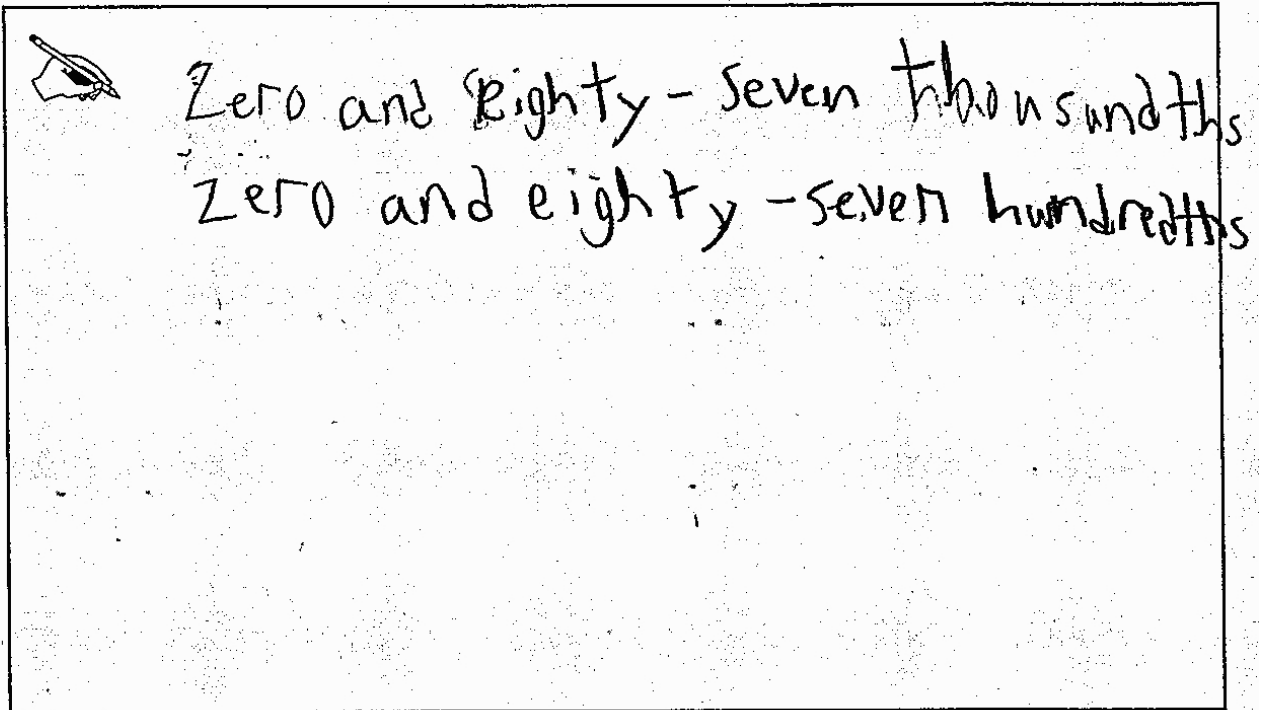 Zero and eighty-seven thousundths
Zero and eighty-seven hundredths